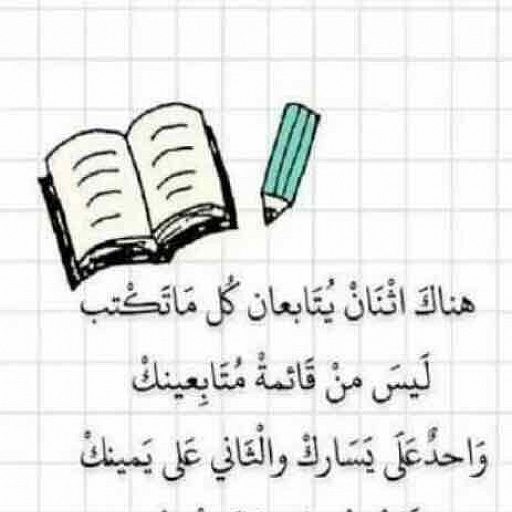 هناكَ اثْنَانْ يُتَابعان كُل مَاتَكْتب
لَيسَ منْ قَائمةْ مُتَابِعينكْ
وَاحدٌعَلَى يَسَاركْ والْثَاني عَلى يَمينكْ